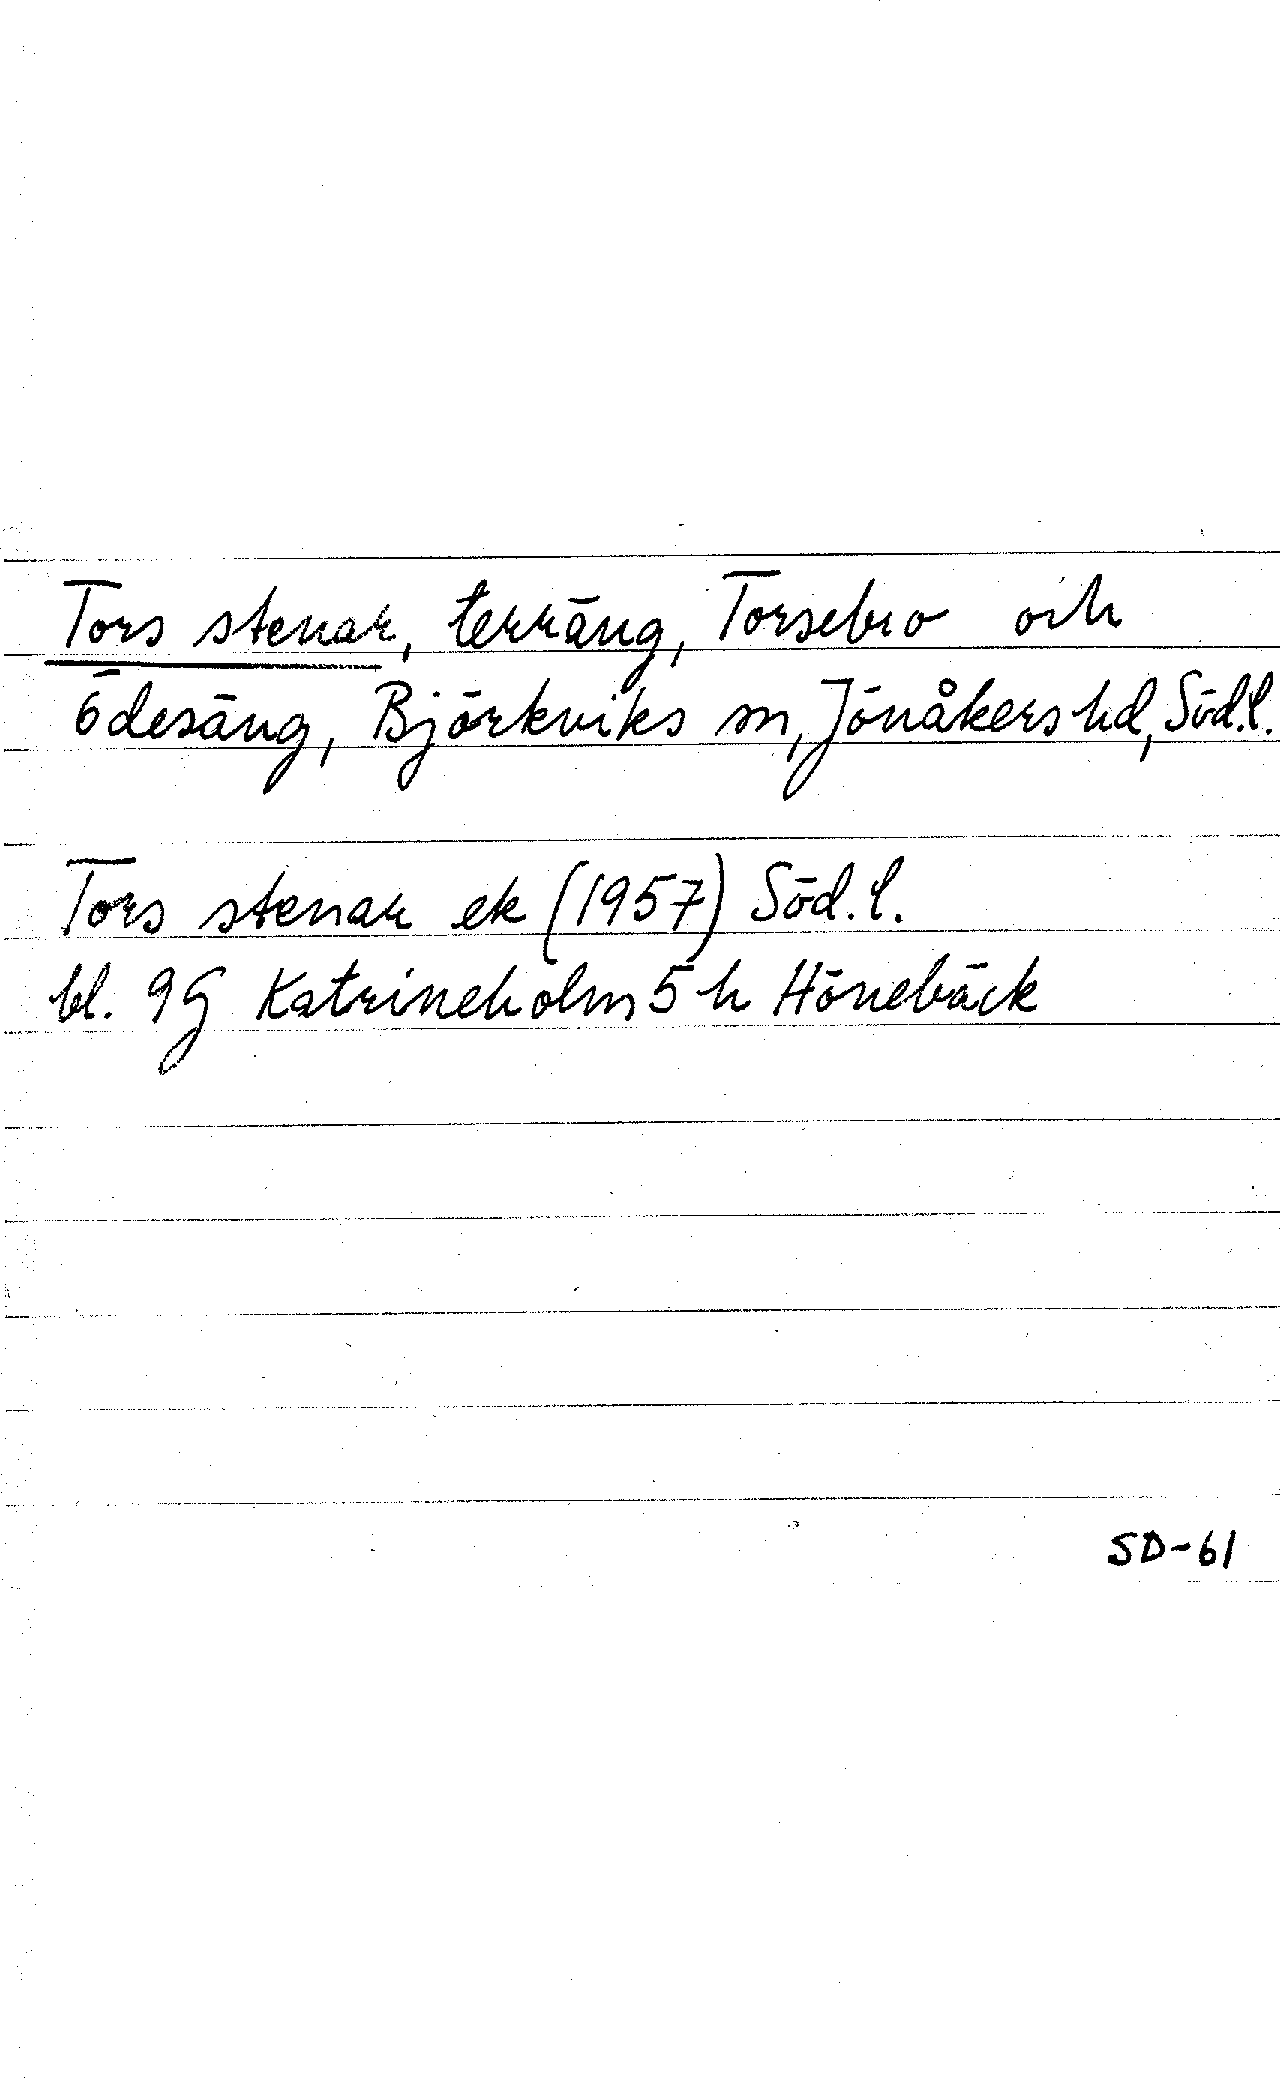 Tors stenar, terräng, Torsebro och
Ödesäng, Björkviks sn, Jönåkers hd, Söd.l.
Tors stenar ek (1957) Söd.l.
bl. 9G Katrineholm 5 h Hönebäck
SD-61